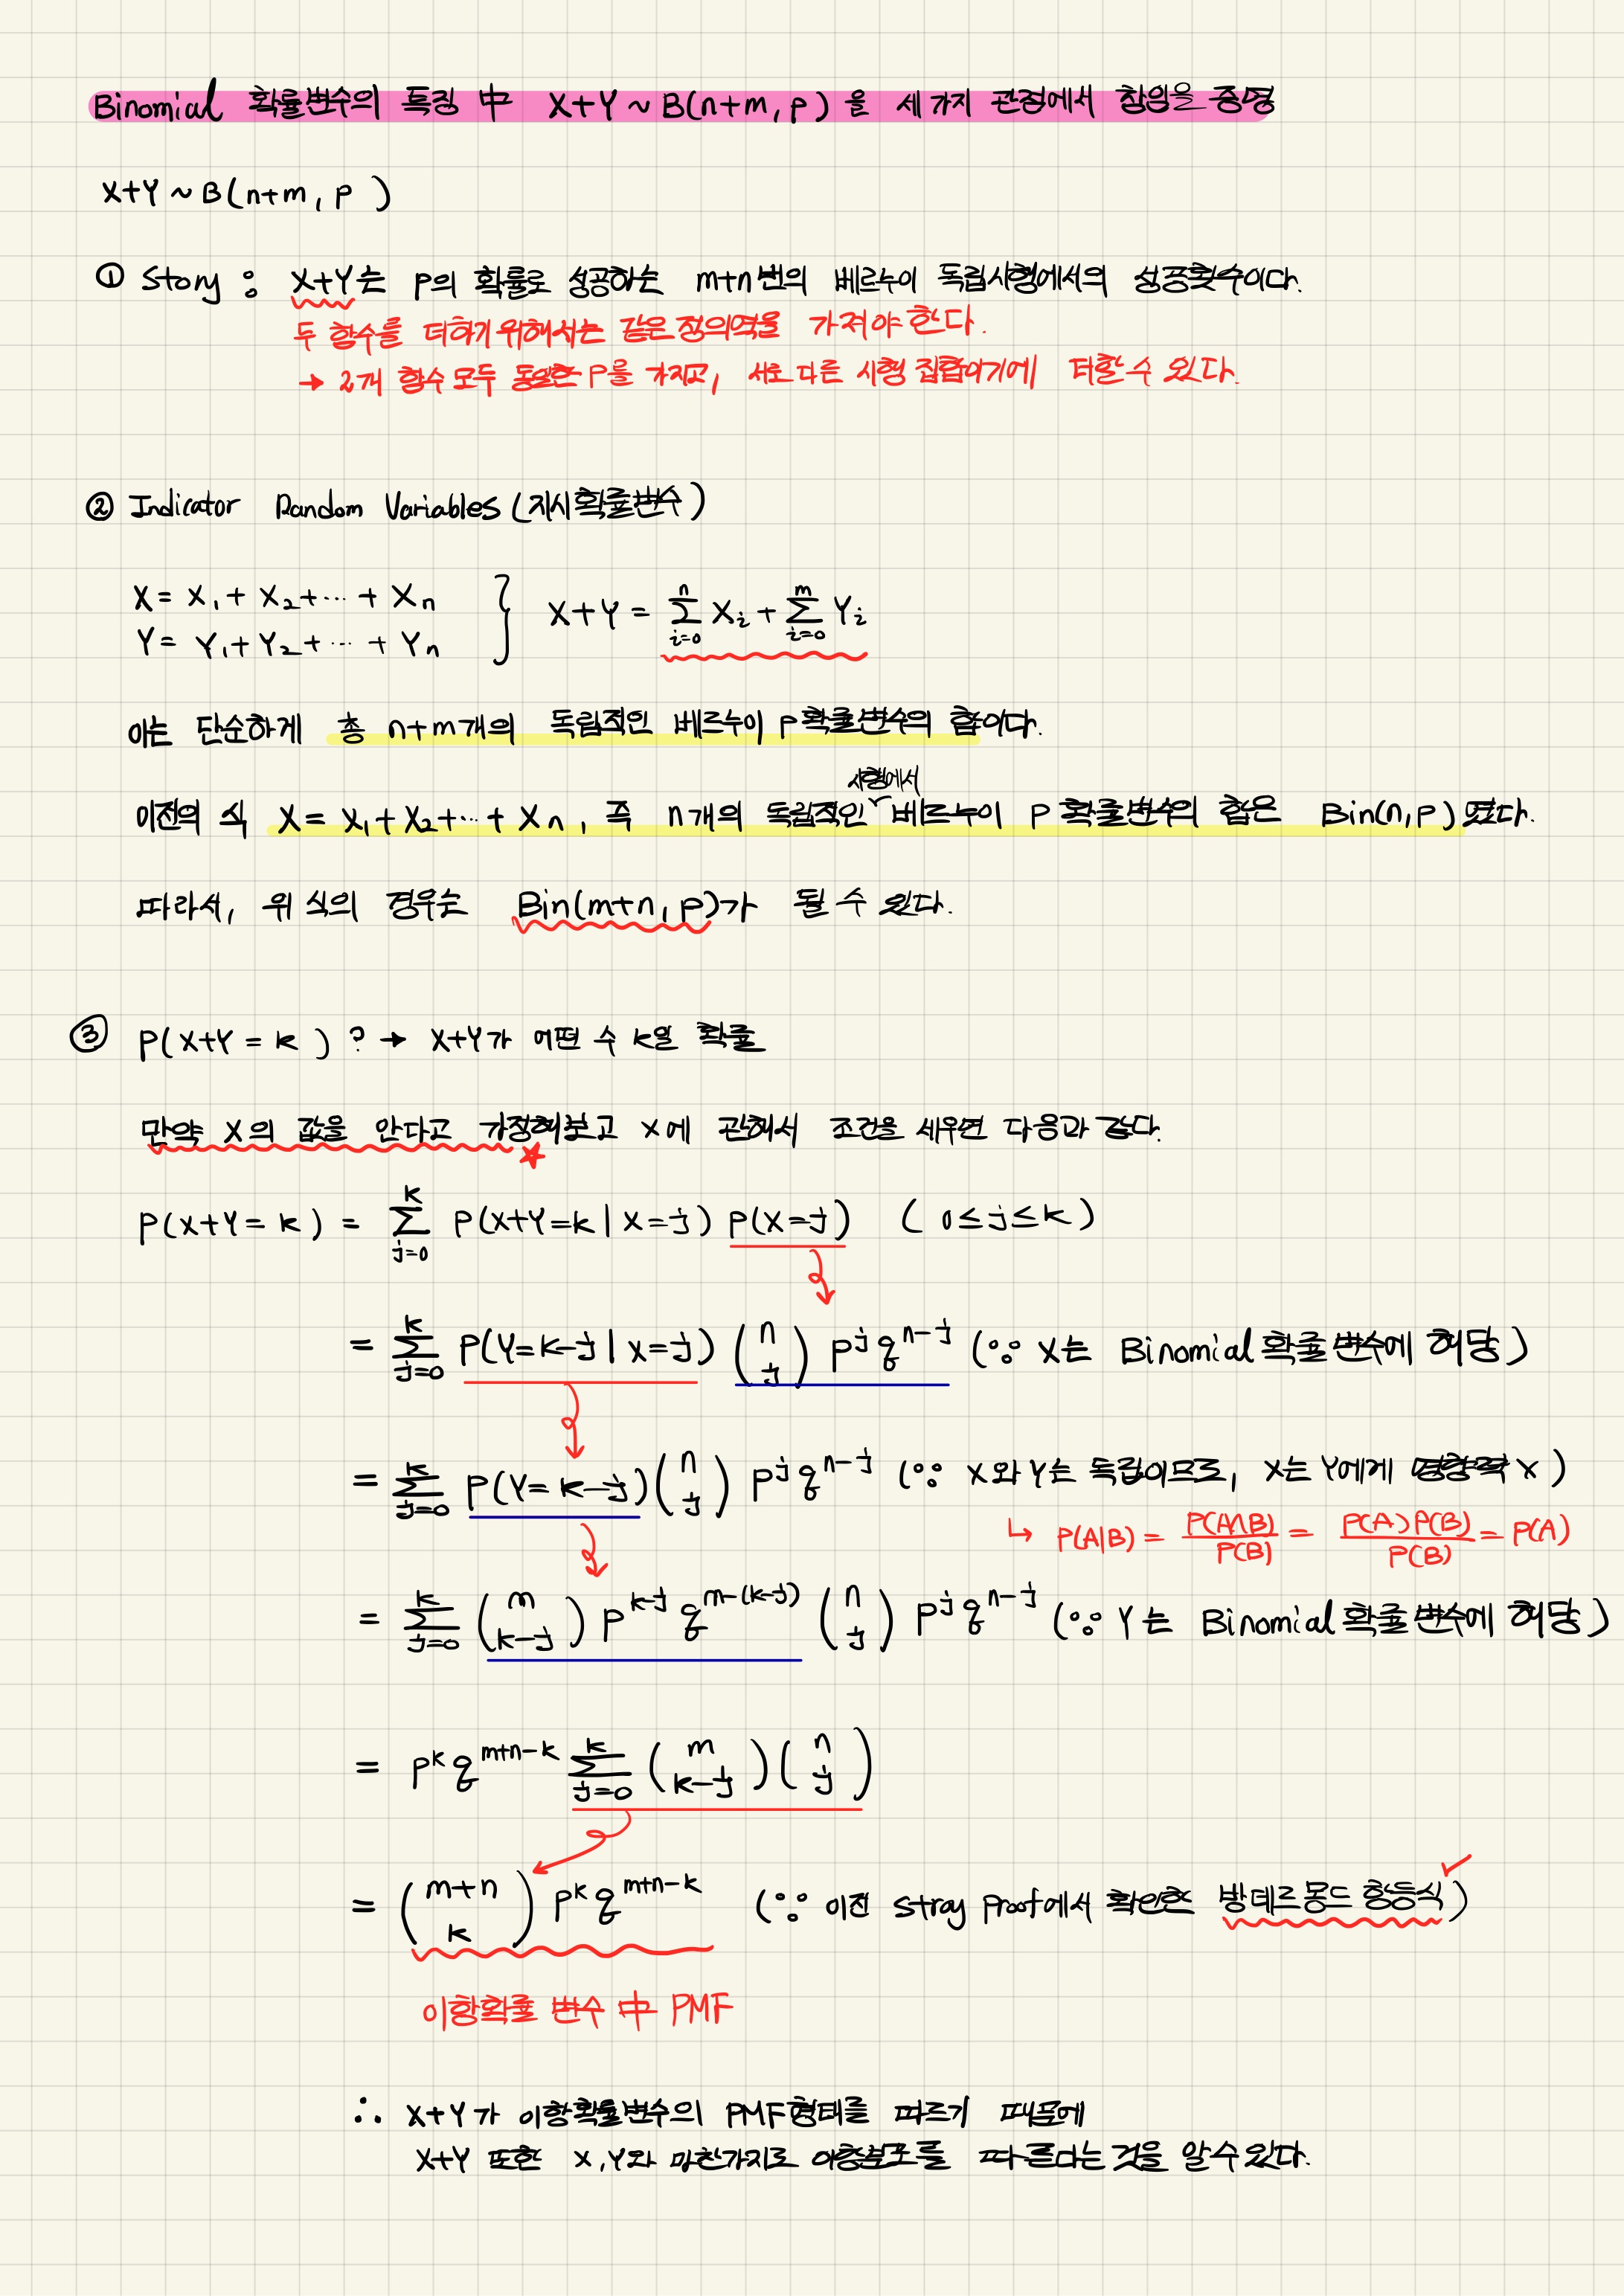 Binomial 확률변수의 특징 中 X+Y ~ B(n+m, p) 을 세가지 관점에서 참임을 증명
X+Y ~ B(n+m, p )
① Story : X+Y는 p의 확률로 성공하는 m+n번의 베르누이 독립시행에서의 성공횟수이다.
두 함수를 더하기 위해서는 같은 정의역을 가져야 한다.
→ 2개 함수 모두 동일한 P를 가지고, 서로 다른 시행 집합이기에 더할 수 있다.
② Indicator Random Variables (지시확률변수)
X = X₁ + X₂ + ⋯ + Xₙ
Y = Y₁ + Y₂ + ⋯ + Yₙ } X+Y = ∑_{i=0}^{n} X_i + ∑_{i=0}^{m} Y_i
이는 단순하게 총 n+m개의 독립적인 베르누이 p확률변수의 합이다.
시행에서
이전의 식 X = X₁ + X₂ + ⋯ + Xₙ, 즉 n개의 독립적인 ∨ 베르누이 P 확률변수의 합은 Bin(n, p) 였다.
따라서, 위 식의 경우는 Bin(m+n, p)가 될 수 있다.
③ P( X+Y = k ) ? → X+Y가 어떤 수 k일 확률
만약 X의 값을 안다고 가정해보고 X에 관해서 조건을 세우면 다음과 같다.
P(X+Y = k) = ∑_{j=0}^{k} P(X+Y=k | X=j) P(X=j) ( 0≤j≤k )
= ∑_{j=0}^{k} P(Y=k-j | X=j) (n j) p^j q^{n-j} (∵ X는 Binomial 확률 변수에 해당)
= ∑_{j=0}^{k} P(Y= k-j) (n j) p^j q^{n-j} (∵ X와 Y는 독립이므로, X는 Y에게 영향력 X )
↳ P(A|B) = P(A∩B)/P(B) = P(A)P(B)/P(B) = P(A)
= ∑_{j=0}^{k} (m k-j) p^{k-j} q^{m-(k-j)} (n j) p^j q^{n-j} (∵ Y는 Binomial 확률 변수에 해당)
= p^k q^{m+n-k} ∑_{j=0}^{k} (m k-j) (n j)
= (m+n k) p^k q^{m+n-k} (∵ 이전 stroy proof에서 확인한 방데르몽드 항등식)
이항확률 변수 中 PMF
∴ X+Y가 이항확률변수의 PMF형태를 따르기 때문에
X+Y 또한 X, Y와 마찬가지로 이항분포를 따른다는 것을 알 수 있다.